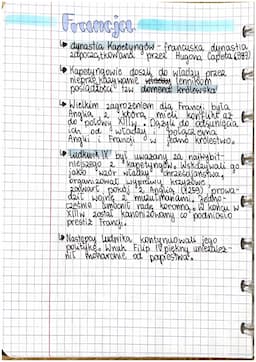 Francja
↳ dynastia Kapetyngów - francuska dynastia
zapoczątkowana przez Hugona Capeta (987)
↳ Kapetyngowie doszli do władzy przez
nieprzekazywanie lennikom
posiadłości tzw domena królewska
↳ Wielkim zagrożeniem dla Francji była
Anglia z którą mieli konflikt aż
do połowy XIII w. Dążyli do odsunięcia
ich od władzy i połączenia
Anglii i Francji w jedno królestwo.
↳ Ludwik IX był uważany za najwybit-
niejszego z kapetyngów. Wskazywali go
jako wzór władcy chrześcijaństwa,
organizował wyprawy krzyżowe,
zawarł pokój z Anglią (1259) prowa-
dził wojnę z muzułmanami, jedno-
cześnie umocnił radę koronną. W końcu w
XIII w został kanonizowany co podniosło
prestiż Francji.
↳ Następcy Ludwika kontynuowali jego
politykę. Wnuk Filip IV piękny uniezależ-
nił monarchię od papiestwa.